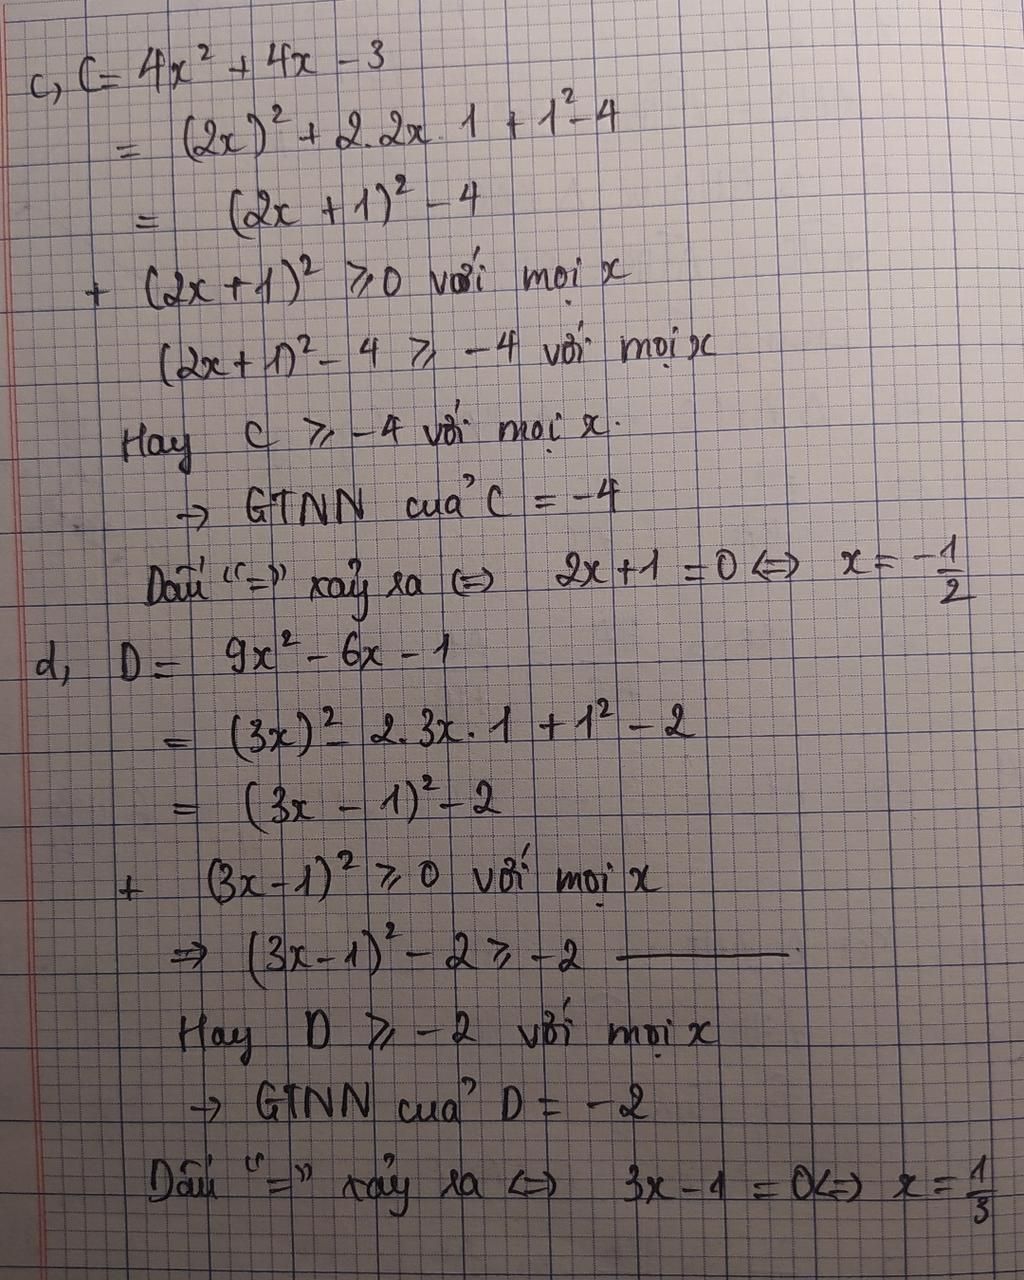 c, C = 4x² + 4x - 3
= (2x)² + 2.2x.1 + 1² - 4
= (2x + 1)² - 4
+ (2x + 1)² ⩾ 0 với mọi x
(2x + 1)² - 4 ⩾ -4 với mọi x
Hay C ⩾ -4 với mọi x.
→ GTNN của C = -4
Dấu "=" xảy ra ⇔ 2x + 1 = 0 ⇔ x = -1/2
d, D = 9x² - 6x - 1
= (3x)² - 2.3x.1 + 1² - 2
= (3x - 1)² - 2
+ (3x - 1)² ⩾ 0 với mọi x
⇒ (3x - 1)² - 2 ⩾ -2 ———
Hay D ⩾ -2 với mọi x
→ GTNN của D = -2
Dấu "=" xảy ra ⇔ 3x - 1 = 0 ⇔ x = 1/3